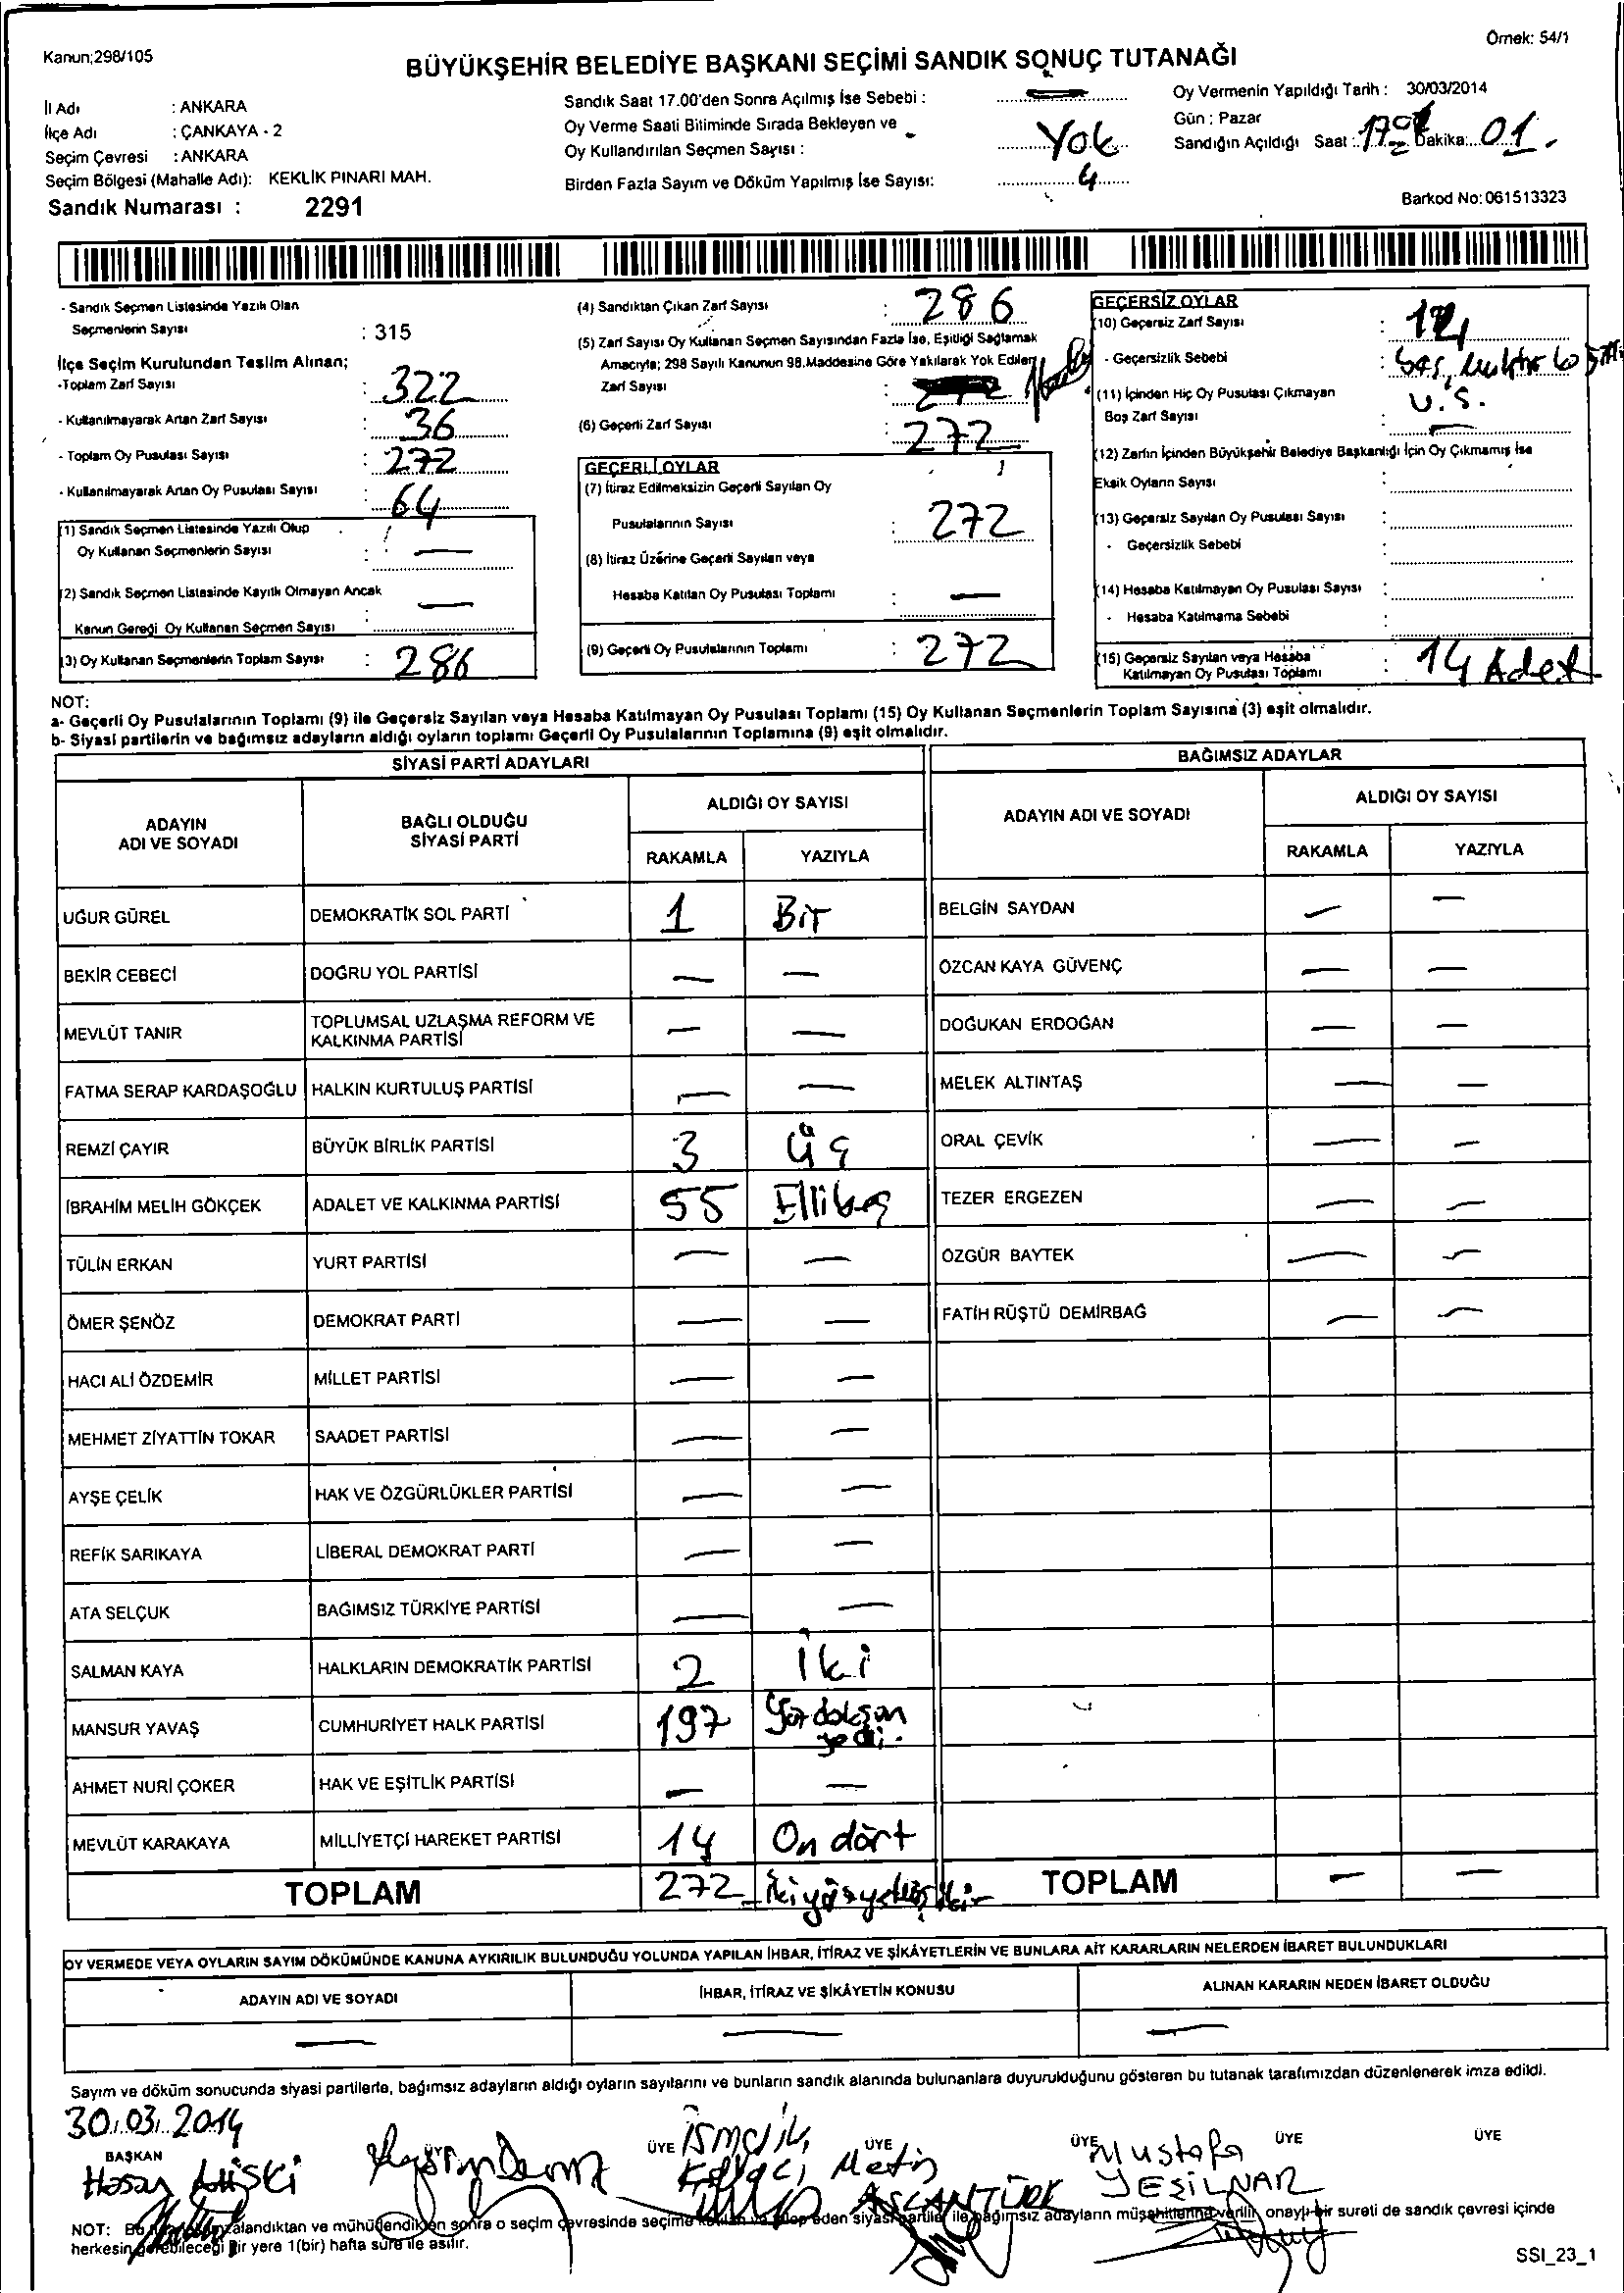 Kanun;298/105
Örnek: 54/1
BÜYÜKŞEHİR BELEDİYE BAŞKANI SEÇİMİ SANDIK SONUÇ TUTANAĞI
İl Adı : ANKARA
İlçe Adı : ÇANKAYA - 2
Seçim Çevresi : ANKARA
Seçim Bölgesi (Mahalle Adı): KEKLİK PINARI MAH.
Sandık Numarası : 2291
Sandık Saat 17.00'den Sonra Açılmış İse Sebebi :
Oy Verme Saati Bitiminde Sırada Bekleyen ve
Oy Kullandırılan Seçmen Sayısı : Yok
Birden Fazla Sayım ve Döküm Yapılmış İse Sayısı: 4
Oy Vermenin Yapıldığı Tarih : 30/03/2014
Gün : Pazar
Sandığın Açıldığı Saat : 17 Dakika: 01.
Barkod No: 061513323
- Sandık Seçmen Listesinde Yazılı Olan
Seçmenlerin Sayısı : 315
İlçe Seçim Kurulundan Teslim Alınan;
-Toplam Zarf Sayısı : 322
- Kullanılmayarak Artan Zarf Sayısı : 36
- Toplam Oy Pusulası Sayısı : 272
- Kullanılmayarak Artan Oy Pusulası Sayısı : 64
(1) Sandık Seçmen Listesinde Yazılı Olup
Oy Kullanan Seçmenlerin Sayısı : —
(2) Sandık Seçmen Listesinde Kayıtlı Olmayan Ancak
Kanun Gereği Oy Kullanan Seçmen Sayısı : —
(3) Oy Kullanan Seçmenlerin Toplam Sayısı : 286
(4) Sandıktan Çıkan Zarf Sayısı : 286
(5) Zarf Sayısı Oy Kullanan Seçmen Sayısından Fazla İse, Eşitliği Sağlamak
Amacıyla; 298 Sayılı Kanunun 98.Maddesine Göre Yakılarak Yok Edilen
Zarf Sayısı :
(6) Geçerli Zarf Sayısı : 272
GEÇERLİ OYLAR
(7) İtiraz Edilmeksizin Geçerli Sayılan Oy
Pusulalarının Sayısı : 272
(8) İtiraz Üzerine Geçerli Sayılan veya
Hesaba Katılan Oy Pusulası Toplamı : —
(9) Geçerli Oy Pusulalarının Toplamı : 272
GEÇERSİZ OYLAR
(10) Geçersiz Zarf Sayısı : 14
- Geçersizlik Sebebi :
v.s.
(11) İçinden Hiç Oy Pusulası Çıkmayan
Boş Zarf Sayısı : —
(12) Zarfın İçinden Büyükşehir Belediye Başkanlığı İçin Oy Çıkmamış İse
Eksik Oyların Sayısı :
(13) Geçersiz Sayılan Oy Pusulası Sayısı :
- Geçersizlik Sebebi :
(14) Hesaba Katılmayan Oy Pusulası Sayısı :
- Hesaba Katılmama Sebebi :
(15) Geçersiz Sayılan veya Hesaba
Katılmayan Oy Pusulası Toplamı : 14 Adet
NOT:
a- Geçerli Oy Pusulalarının Toplamı (9) ile Geçersiz Sayılan veya Hesaba Katılmayan Oy Pusulası Toplamı (15) Oy Kullanan Seçmenlerin Toplam Sayısına (3) eşit olmalıdır.
b- Siyasi partilerin ve bağımsız adayların aldığı oyların toplamı Geçerli Oy Pusulalarının Toplamına (9) eşit olmalıdır.
SİYASİ PARTİ ADAYLARI
ADAYIN
ADI VE SOYADI
BAĞLI OLDUĞU
SİYASİ PARTİ
ALDIĞI OY SAYISI
RAKAMLA YAZIYLA
UĞUR GÜREL DEMOKRATİK SOL PARTİ 1 Bir
BEKİR CEBECİ DOĞRU YOL PARTİSİ — —
MEVLÜT TANIR TOPLUMSAL UZLAŞMA REFORM VE
KALKINMA PARTİSİ — —
FATMA SERAP KARDAŞOĞLU HALKIN KURTULUŞ PARTİSİ — —
REMZİ ÇAYIR BÜYÜK BİRLİK PARTİSİ 3 Üç
İBRAHİM MELİH GÖKÇEK ADALET VE KALKINMA PARTİSİ 55 Ellibeş
TÜLİN ERKAN YURT PARTİSİ — —
ÖMER ŞENÖZ DEMOKRAT PARTİ — —
HACI ALİ ÖZDEMİR MİLLET PARTİSİ — —
MEHMET ZİYATTİN TOKAR SAADET PARTİSİ — —
AYŞE ÇELİK HAK VE ÖZGÜRLÜKLER PARTİSİ — —
REFİK SARIKAYA LİBERAL DEMOKRAT PARTİ — —
ATA SELÇUK BAĞIMSIZ TÜRKİYE PARTİSİ — —
SALMAN KAYA HALKLARIN DEMOKRATİK PARTİSİ 2 İki
MANSUR YAVAŞ CUMHURİYET HALK PARTİSİ 197 Yüzdoksan
yedi.
AHMET NURİ ÇOKER HAK VE EŞİTLİK PARTİSİ — —
MEVLÜT KARAKAYA MİLLİYETÇİ HAREKET PARTİSİ 14 On dört
TOPLAM 272
BAĞIMSIZ ADAYLAR
ADAYIN ADI VE SOYADI
ALDIĞI OY SAYISI
RAKAMLA YAZIYLA
BELGİN SAYDAN — —
ÖZCAN KAYA GÜVENÇ — —
DOĞUKAN ERDOĞAN — —
MELEK ALTINTAŞ — —
ORAL ÇEVİK — —
TEZER ERGEZEN — —
ÖZGÜR BAYTEK — —
FATİH RÜŞTÜ DEMİRBAĞ — —
TOPLAM — —
OY VERMEDE VEYA OYLARIN SAYIM DÖKÜMÜNDE KANUNA AYKIRILIK BULUNDUĞU YOLUNDA YAPILAN İHBAR, İTİRAZ VE ŞİKÂYETLERİN VE BUNLARA AİT KARARLARIN NELERDEN İBARET BULUNDUKLARI
ADAYIN ADI VE SOYADI İHBAR, İTİRAZ VE ŞİKÂYETİN KONUSU ALINAN KARARIN NEDEN İBARET OLDUĞU
— — —
Sayım ve döküm sonucunda siyasi partilerle, bağımsız adayların aldığı oyların sayılarını ve bunların sandık alanında bulunanlara duyurulduğunu gösteren bu tutanak tarafımızdan düzenlenerek imza edildi.
30.03.2014
BAŞKAN ÜYE ÜYE ÜYE ÜYE ÜYE ÜYE
Hasan
İsmail
Metin
ASLANTÜRK
Mustafa
YEŞİLNAR
NOT: Bu alandıktan ve mühürlendikten sonra o seçim çevresinde seçime katılan ve talep eden siyasi partiler ile bağımsız adayların müşahitlerine verilir, onaylı bir sureti de sandık çevresi içinde
herkesin görebileceği bir yere 1(bir) hafta süre ile asılır.
SSI_23_1